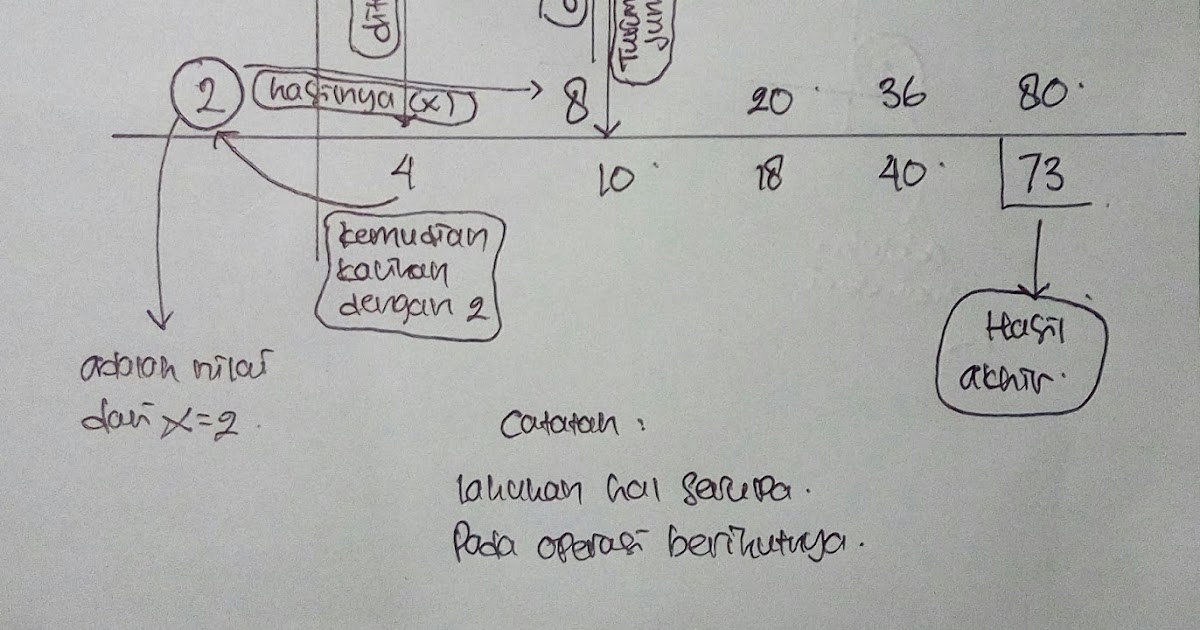 2 hasilnya (x) 8 20 36 80
4 10 18 40 73
kemudian
kalikan
dengan 2
Hasil
akhir.
adalah nilai
dari x=2.
Catatan :
lakukan hal serupa.
Pada operasi berikutnya.